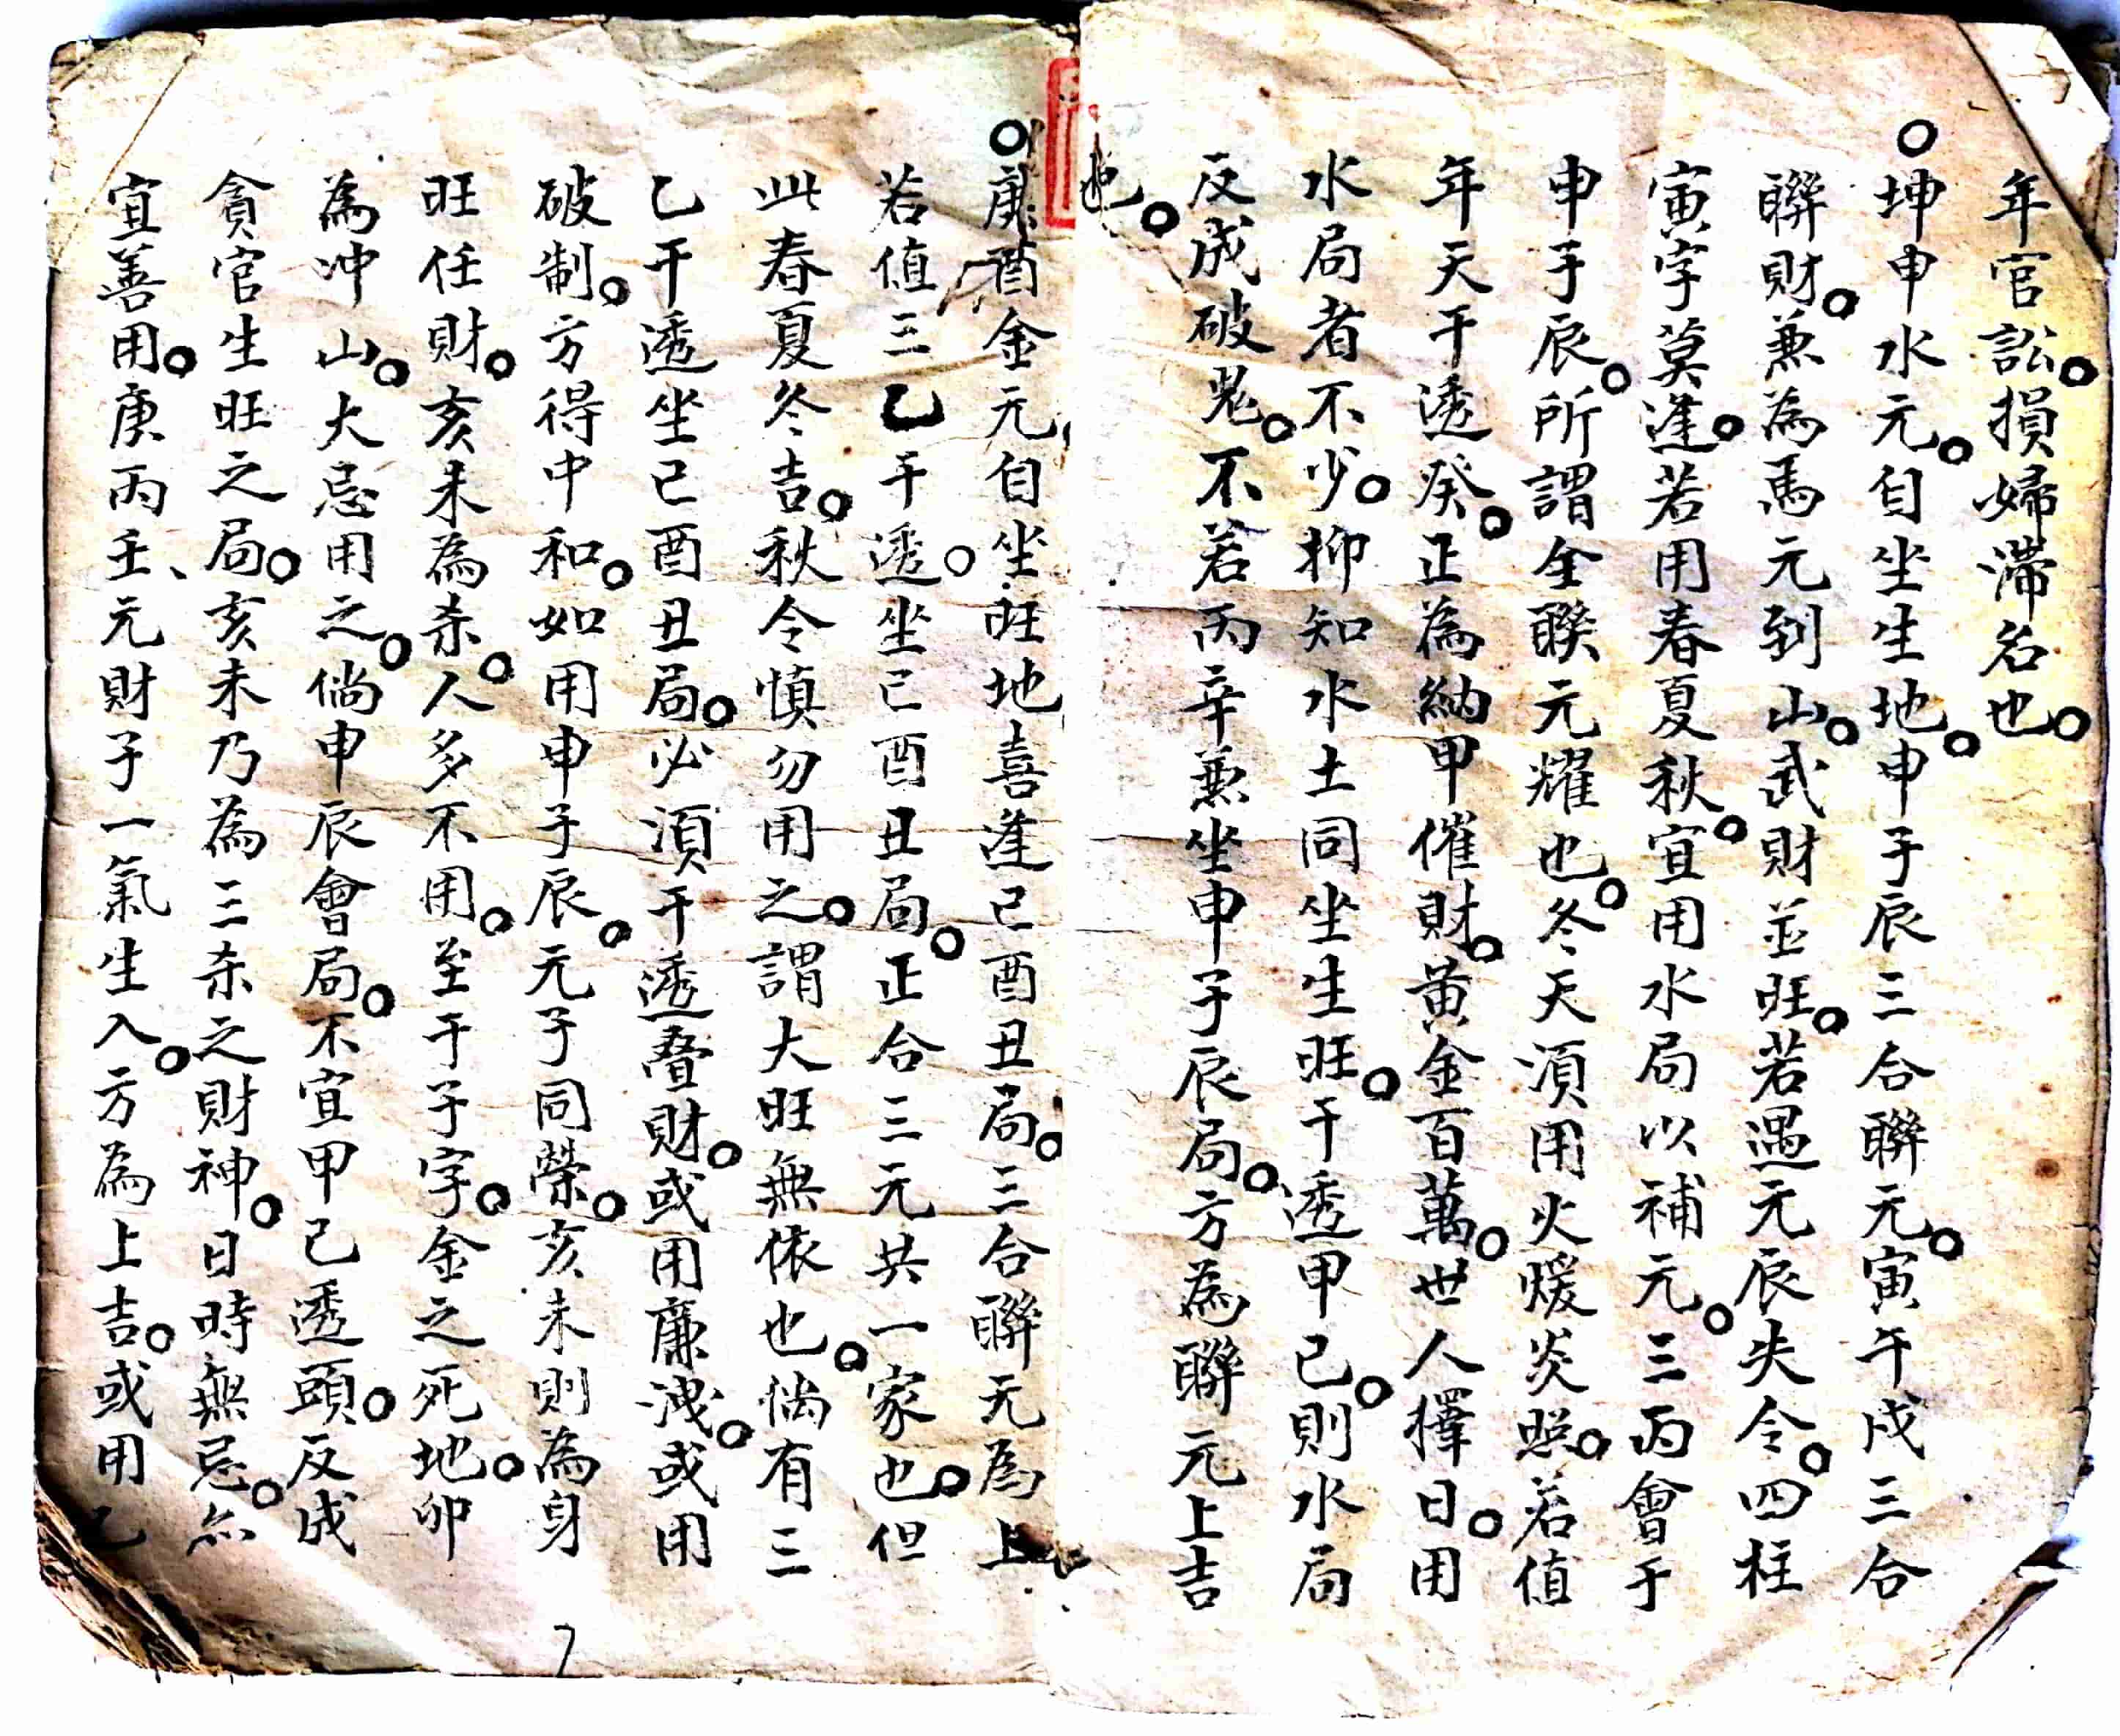 年官訟。損婦滯名也。
○坤申水元。自坐生地。申子辰三合聯元。寅午戌三合
聯財。兼為馬元到山。武財並旺。若遇元辰失令。四柱
寅字莫逢。若用春夏秋。宜用水局以補元。三丙會于
申子辰。所謂全聯元耀也。冬天須用火煖炎照。若值
年天干透癸。正為納甲催財。黃金百萬。世人擇日。用
水局者不少。抑知水土同坐生旺。干透甲己。則水局
反成破鬼。不若丙辛兼坐申子辰局。方為聯元上吉
也。
○庚酉金元自坐旺地喜逢巳酉丑局。三合聯元為上
若值三乙干透。坐巳酉丑局。正合三元共一家也。但
此春夏冬吉。秋令慎勿用之。謂大旺無依也。倘有三
乙干透坐巳酉丑局。必須干透叠財。或用廉洩。或用
破制。方得中和。如用申子辰。元子同榮。亥未則為身
旺任財。亥未為杀。人多不用。至于子字。金之死地。卯
為冲山。大忌用之。倘申辰會局。不宜甲己透頭。反成
貪官生旺之局。亥未乃為三杀之財神。日時無忌。尒
宜善用。庚丙壬、元財子一氣生入。方為上吉。或用乙
7